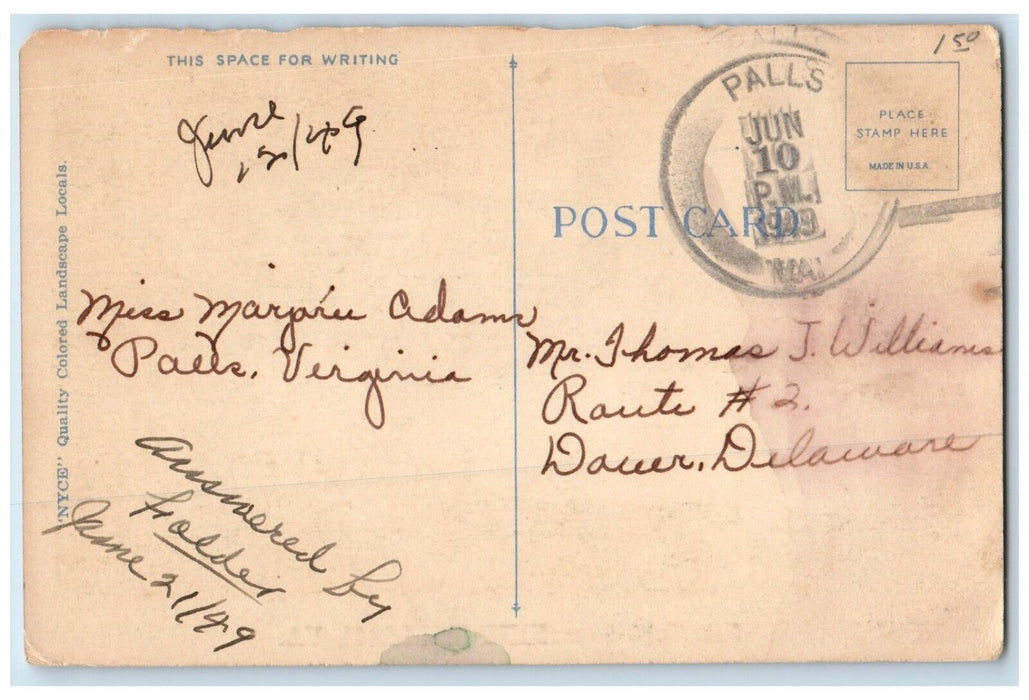 THIS SPACE FOR WRITING
June
12/49
Miss Marjorie Adams
Palls, Virginia
Answered by
Folder
June 21/49
"NYCE" Quality Colored Landscape Locals.
1 50
PALLS
JUN
10
P.M.
1949
VA.
PLACE
STAMP HERE
MADE IN U.S.A.
POST CARD
Mr. Thomas J. Williams
Route #2.
Dover, Delaware